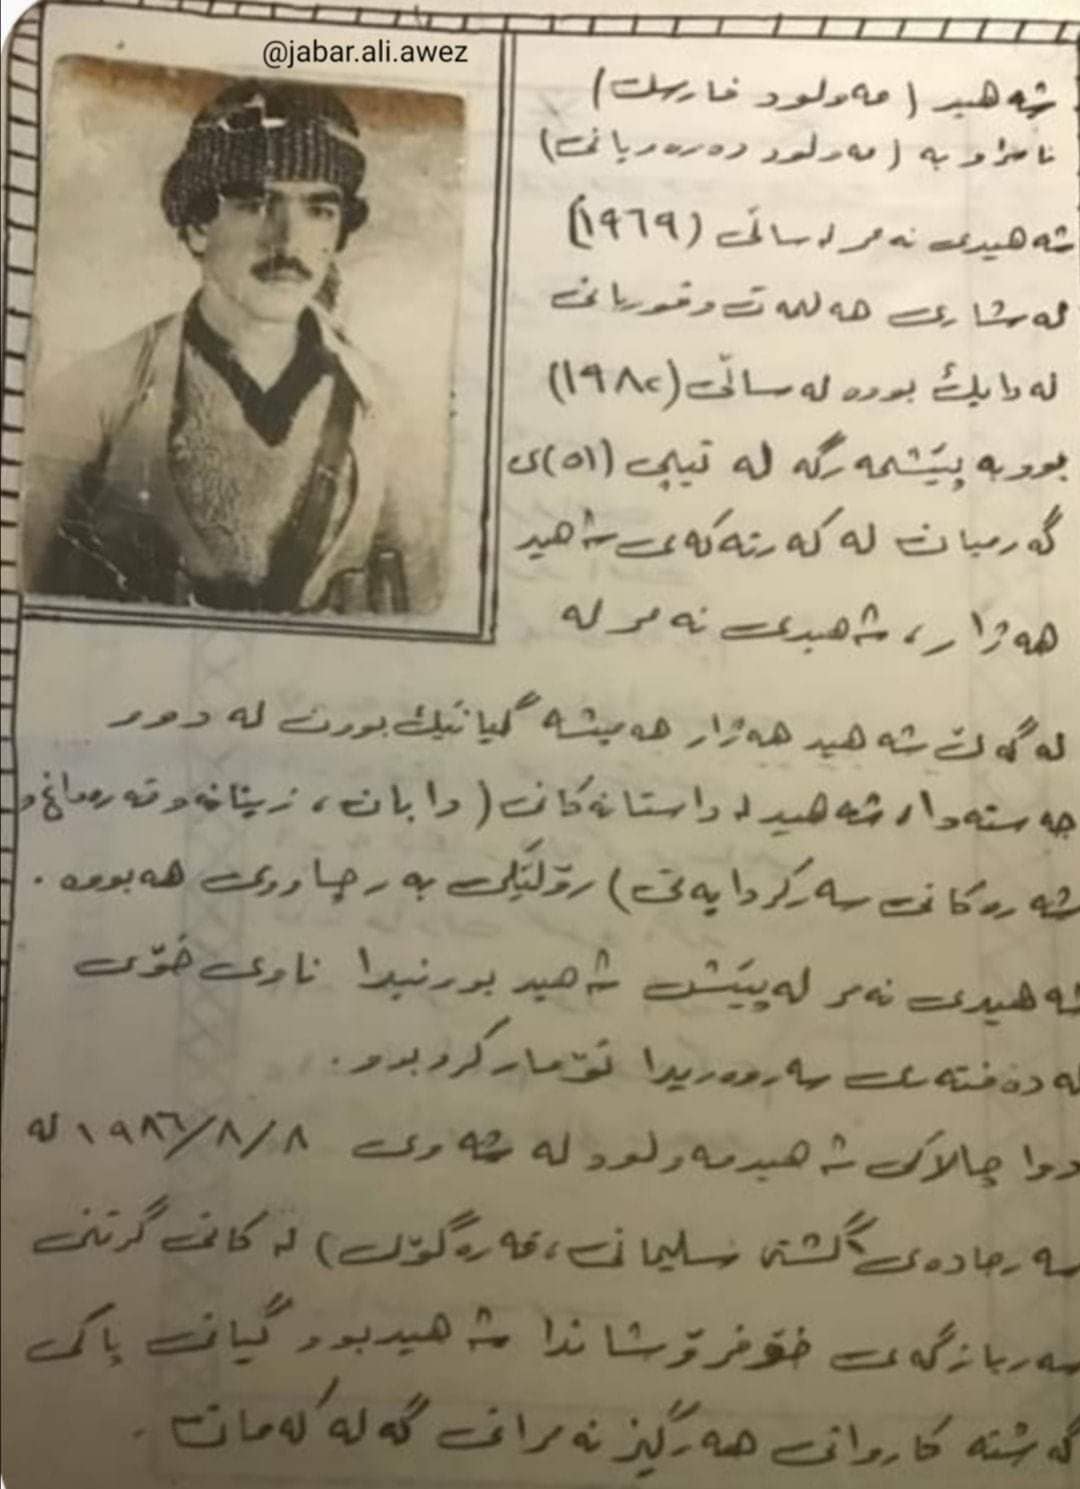 @jabar.ali.awez
شەهید (مەولود فارس)
ناسراو بە (مەولود دەرەویانی)
شەهیدی نەمر لە ساڵی (١٩٦٩)
لە شاری هەڵمەت و قوربانی
لە دایك بووە لە ساڵی (١٩٨٢)
بوو بە پێشمەرگە لە تیپی (٥١)ی
گەرمیان لە کەرتەکەی شەهید
هەژار، شەهیدی نەمر لە
لەگەڵ شەهید هەژار هەمیشە گیانێك بوون لە دوو
جەستەدا، شەهید لە داستانەکانی (دابان، زینانە و قەرەداغ و
شەڕەکانی سەرکردایەتی) ڕۆڵێکی بەرچاوی هەبووە.
شەهیدی نەمر لە پێش شەهید بوونیدا ناوی خۆی
لە دەفتەری سەروەریدا تۆمار کردبوو.
دوا چالاکی شەهید مەولود لە شەوی ١٩٨٦/٨/٨ لە
سەر جادەی گشتی سلیمانی، قەرەگۆل) لە کاتی گرتنی
سەربازگەی خۆفرۆشاندا شەهید بوو گیانی پاکی
گەشتە کاروانی هەرگیز نەمرانی گەلەکەمان.